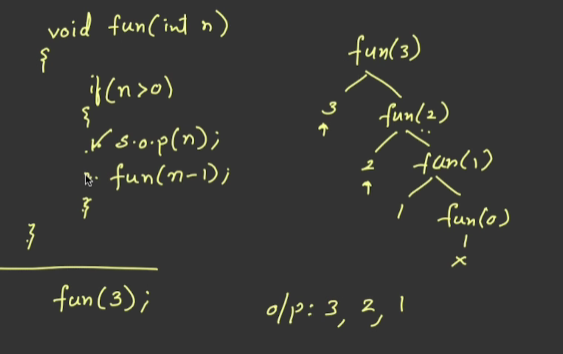 void fun(int n)
{
if(n>0)
{
s.o.p(n);
fun(n-1);
}
}
fun(3);
fun(3)
3 fun(2)
2 fun(1)
1 fun(0)
x
o/p: 3, 2, 1